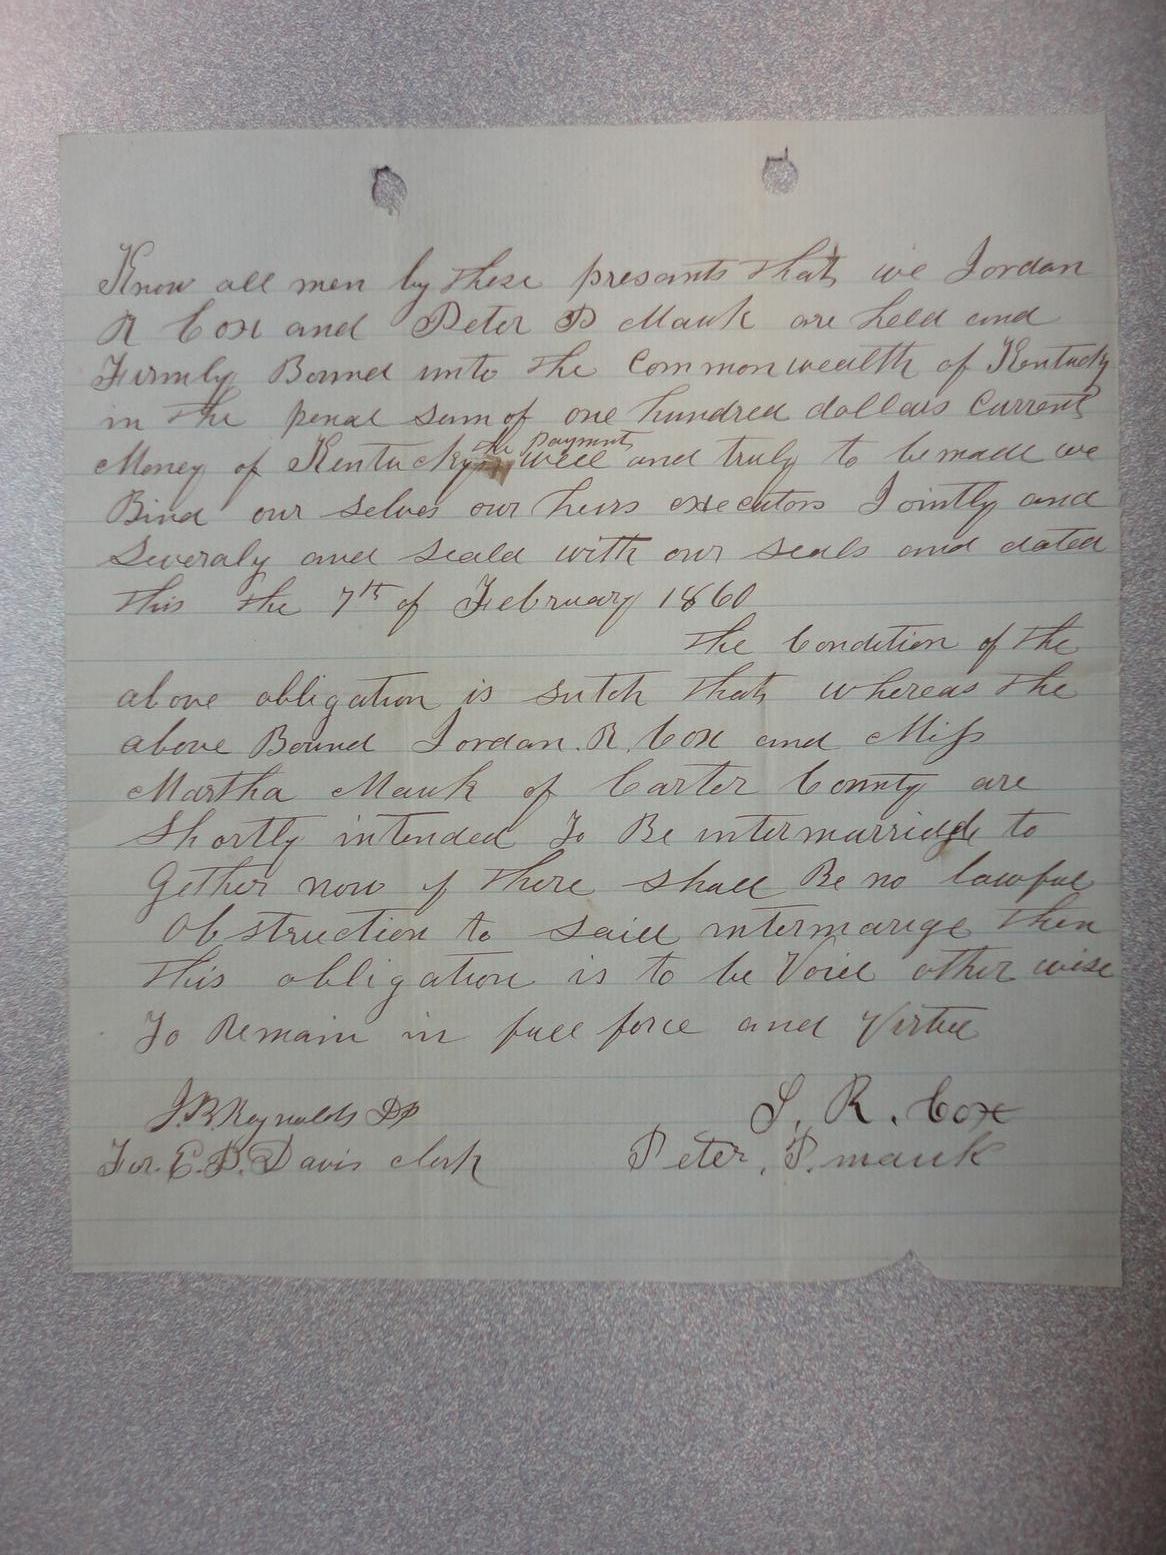 Know all men by these presants that we Jordan
R Cox and Peter P Mauk are held and
Firmly Bound unto the Commonwealth of Kentucky
in the penal sum of one hundred dollars Current
the payment
Money of Kentucky well and truly to be made we
Bind our selves our heirs executors Jointly and
Severaly and seald with our seals and dated
this the 7th of February 1860
the Condition of the
above obligation is sutch that whereas the
above Bound Jordan. R. Cox and Miss
Martha Mauk of Carter County are
Shortly intended To Be intermarridge to
Gether now if there shall Be no lawful
Obstruction to said intermarige then
this obligation is to be Void other wise
To Remain in full force and Virtue
J. R. Cox
J. B Reynolds DP
Peter. P. mauk
For. E. B. Davis clerk